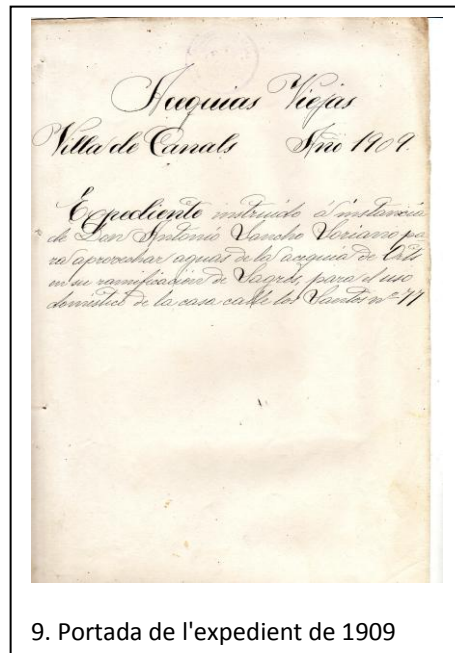 Acequias Viejas
Villa de Canals Año 1909.
Expediente instruido á instancia
de Don Antonio Sancho Soriano pa
ra aprovechar aguas de la acequia de Orts
en su ramificación de Sagres, para el uso
doméstico de la casa calle los Santos nº 77
9. Portada de l'expedient de 1909